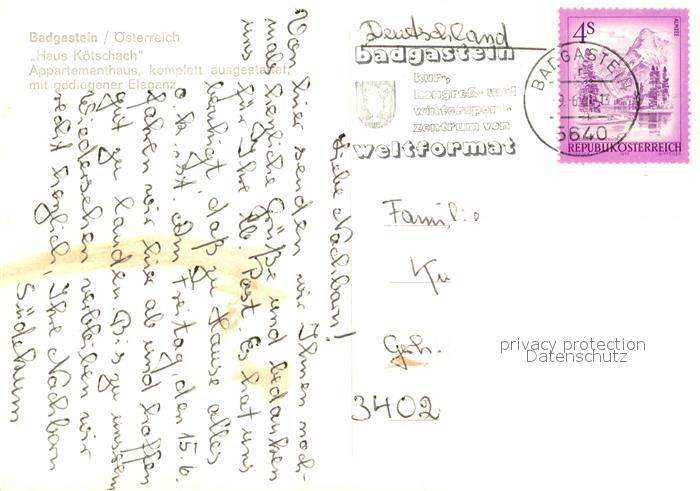 Badgastein / Österreich
„Haus Kötschach"
Appartementhaus, komplett ausgestattet,
mit gediegener Eleganz
Deutschland
badgastein
kur-,
kongreß- und
wintersport-
zentrum von
weltformat
BADGASTEIN
5640
4S
ALMSEE
REPUBLIK ÖSTERREICH
Liebe Nachbarn!
Von hier senden wir Ihnen noch-
mals herzliche Grüße und bedanken
uns für Ihre lb. Post. Es hat uns
beruhigt, daß zu Hause alles
o.k. ist. Am Freitag, den 15.6.
fahren wir hier ab und hoffen
gut zu landen. Bis zu unserem
Wiedersehen verbleiben wir
recht herzlich, Ihre Nachbarn
Südekum
Familie
Ku
Gerh.
3402
privacy protection
Datenschutz